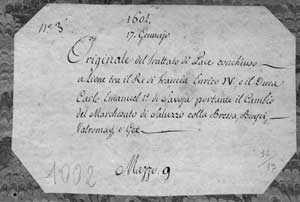 nº 3
1601.
17. Gennajo
Originale del trattato di Pace conchiuso
a Lione tra il Re di francia Enrico IV. e il Duca
Carlo Emanuel 1º di Savoja portante il Cambio
del Marchesato di Saluzzo colla Bressa, Bugei,
Valromey, e Gex
Mazzo. 9
1002